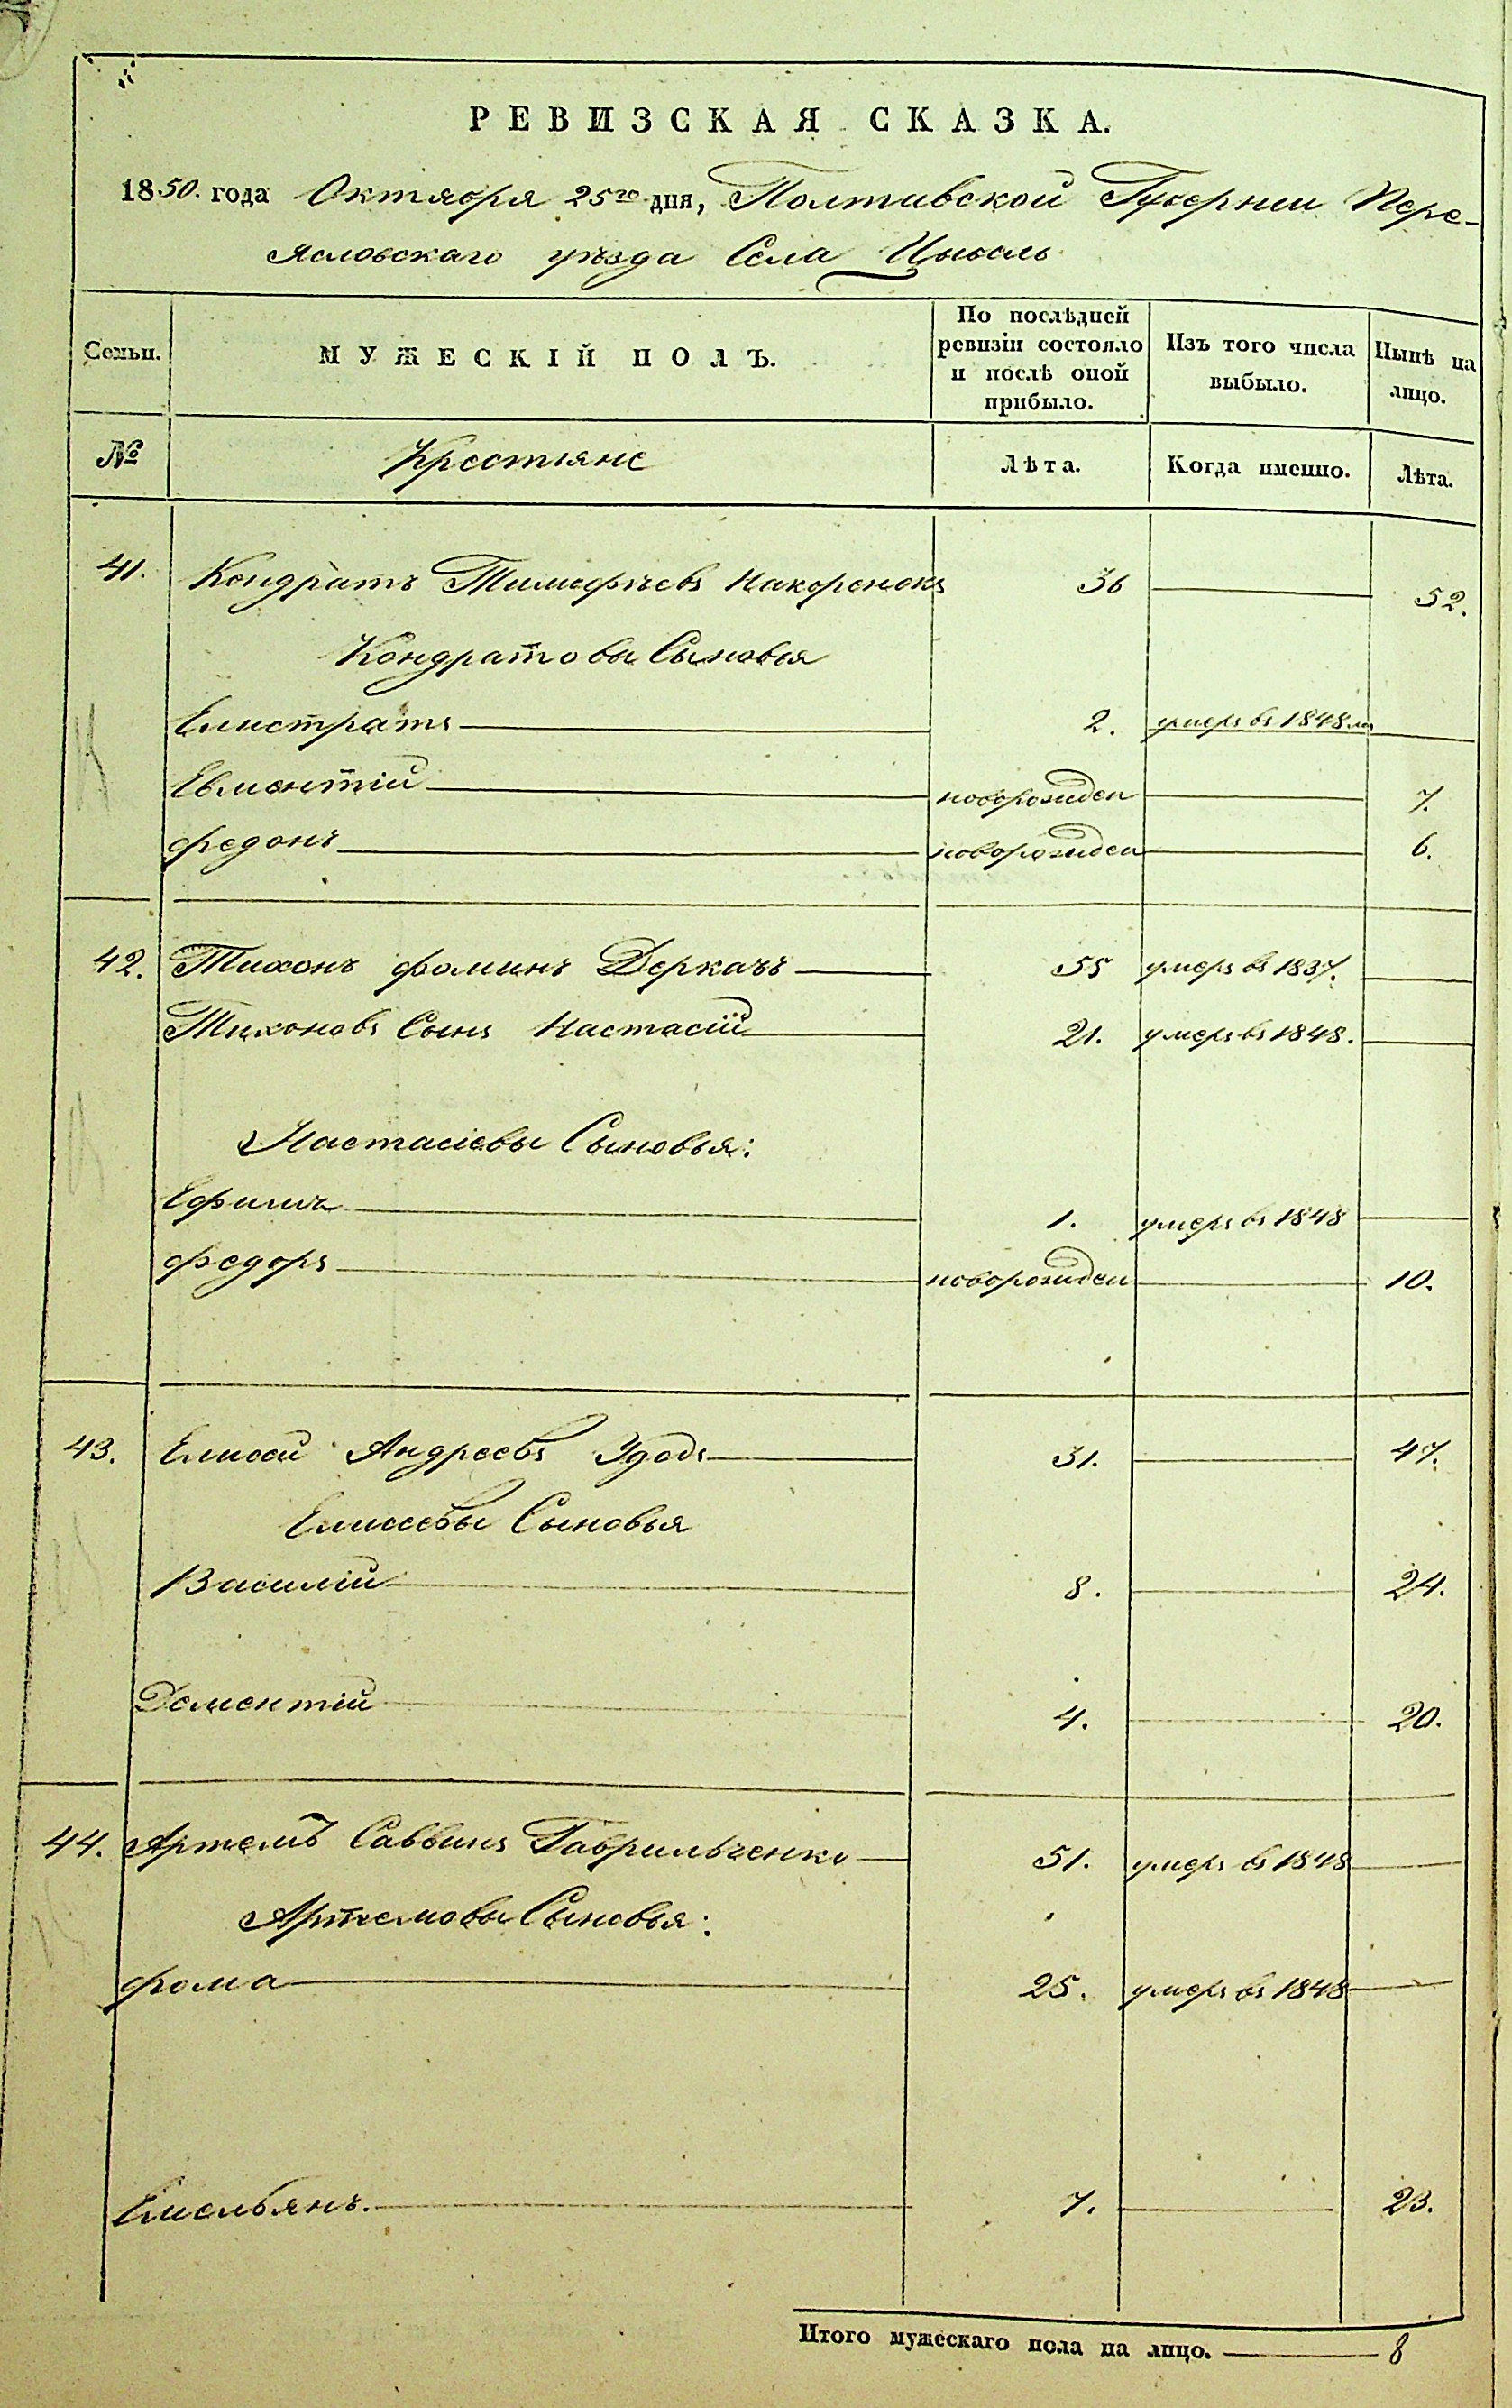 РЕВИЗСКАЯ СКАЗКА.
1850. года Октября 25го дня, Полтавской Губернии Пере-
ясловскаго уѣзда Села Цыбель
Семьи.
МУЖЕСКІЙ ПОЛЪ.
По послѣдней
ревизіи состояло
и послѣ оной
прибыло.
Изъ того числа
выбыло.
Нынѣ на
лицо.
№ Крестьяне Лѣта. Когда именно. Лѣта.
41. Кондратъ Тимофѣевъ Накоренокъ 36 52.
Кондратовы Сыновья
Елистратъ 2. умеръ въ 1848м
Евментій новорожден 7.
Федонъ новорожден 6.
42. Тихонъ Фоминъ Деркачъ 55 умеръ въ 1837.
Тихоновъ Сынъ Настасій 21. умеръ въ 1848.
Настасіевы Сыновья:
Ефимъ 1. умеръ въ 1848
Федоръ новорожден 10.
43. Елисей Андреевъ Удодъ 31. 47.
Елисеевы Сыновья
Василій 8. 24.
Дементій 4. 20.
44. Артемъ Саввинъ Гаврильченко 51. умеръ въ 1848
Артемовы Сыновья:
Фома 25. умеръ въ 1848
Емельянъ. 7. 23.
Итого мужескаго пола на лицо. 8